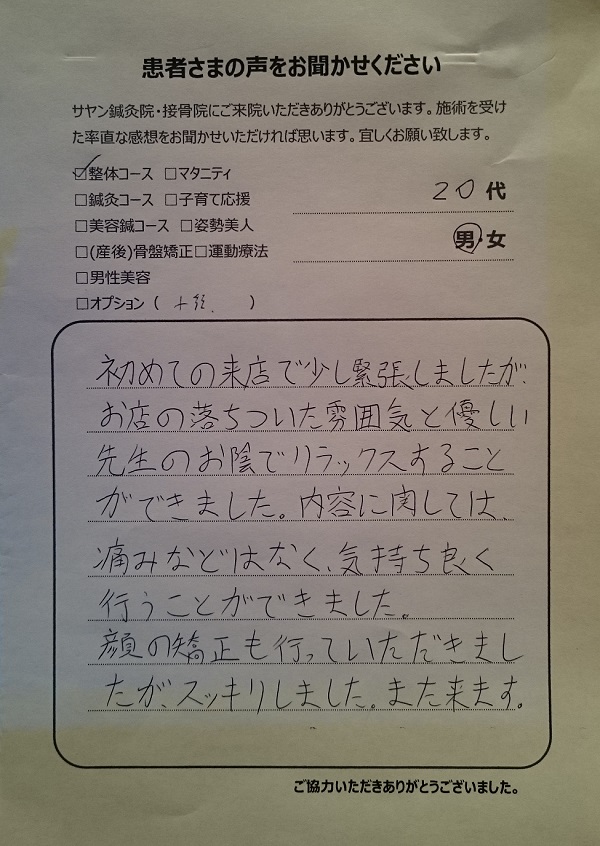 患者さまの声をお聞かせください
サヤン鍼灸院・接骨院にご来院いただきありがとうございます。施術を受け
た率直な感想をお聞かせいただければ思います。宜しくお願い致します。
☑整体コース □マタニティ
□鍼灸コース □子育て応援
□美容鍼コース □姿勢美人
□(産後)骨盤矯正□運動療法
□男性美容
□オプション ( )
20代
男・女
初めての来店で少し緊張しましたが、
お店の落ちついた雰囲気と優しい
先生のお陰でリラックスすること
ができました。内容に関しては、
痛みなどはなく、気持ち良く
行うことができました。
顔の矯正も行っていただきまし
たが、スッキリしました。また来ます。
ご協力いただきありがとうございました。